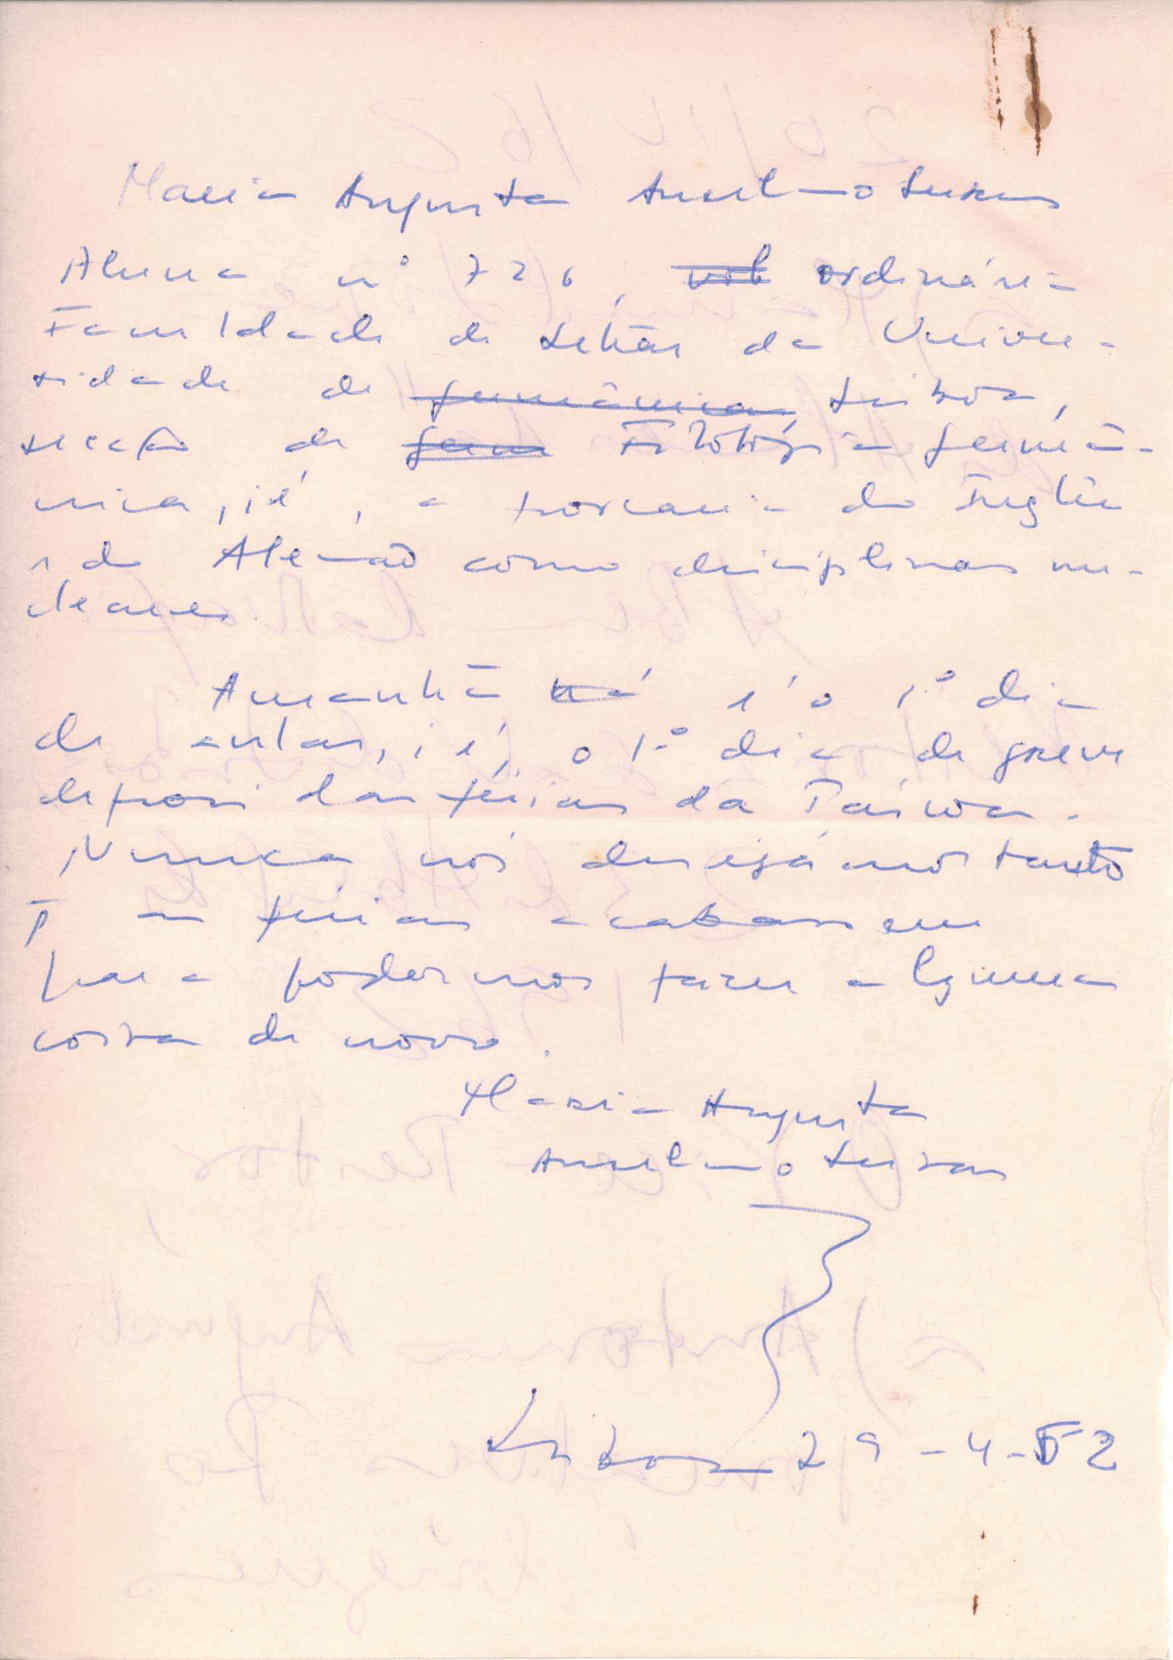 Maria Augusta Anselmo Seixas
Aluna nº 726, ordinária
Faculdade de Letras da Univer-
sidade de germânicas Lisboa,
secção de germ Filologia germâ-
nica, i é, a porcaria do Inglês
e do Alemão como disciplinas nu-
cleares.
Amanhã há é o 1º dia
de aulas, i é, o 1º dia de greve
depois das férias da Páscoa.
Nunca nós desejámos tanto
q as férias acabassem
para podermos fazer alguma
coisa de novo.
Maria Augusta
Anselmo Seixas
Lisboa 29-4-62